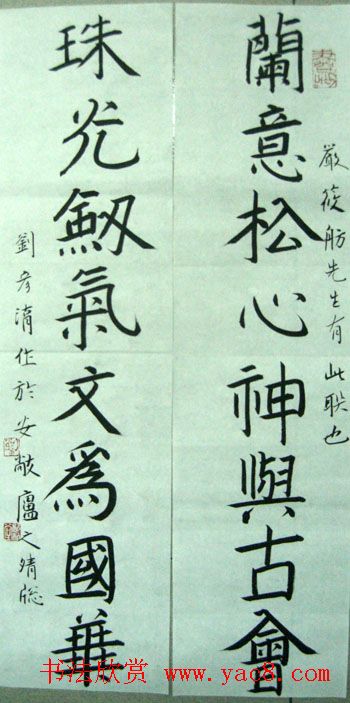 蘭意松心神與古會
嚴筱舫先生有此联也
珠光劔氣文爲國華
劉彦湳作於安敲廬之晴窓
书法欣赏 www.yac8.com